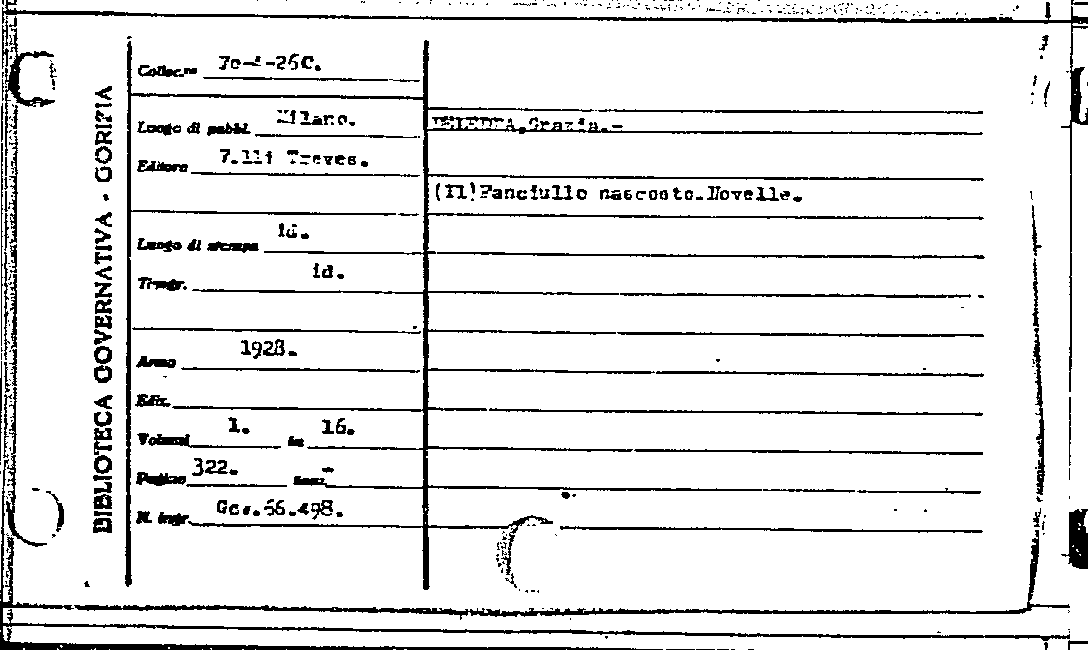 BIBLIOTECA GOVERNATIVA - GORIZIA
Colloc.ne
Luogo di pubbl. Milano.
Editore F.lli Treves.
Luogo di stampa id.
Tipogr. id.
Anno 1928.
Ediz.
Volumi 1. in 16.
Pagine 322. -
N. ingr. Gov.56.498.
DELEDDA,Grazia.-
(Il)Fanciullo nascosto.Novelle.